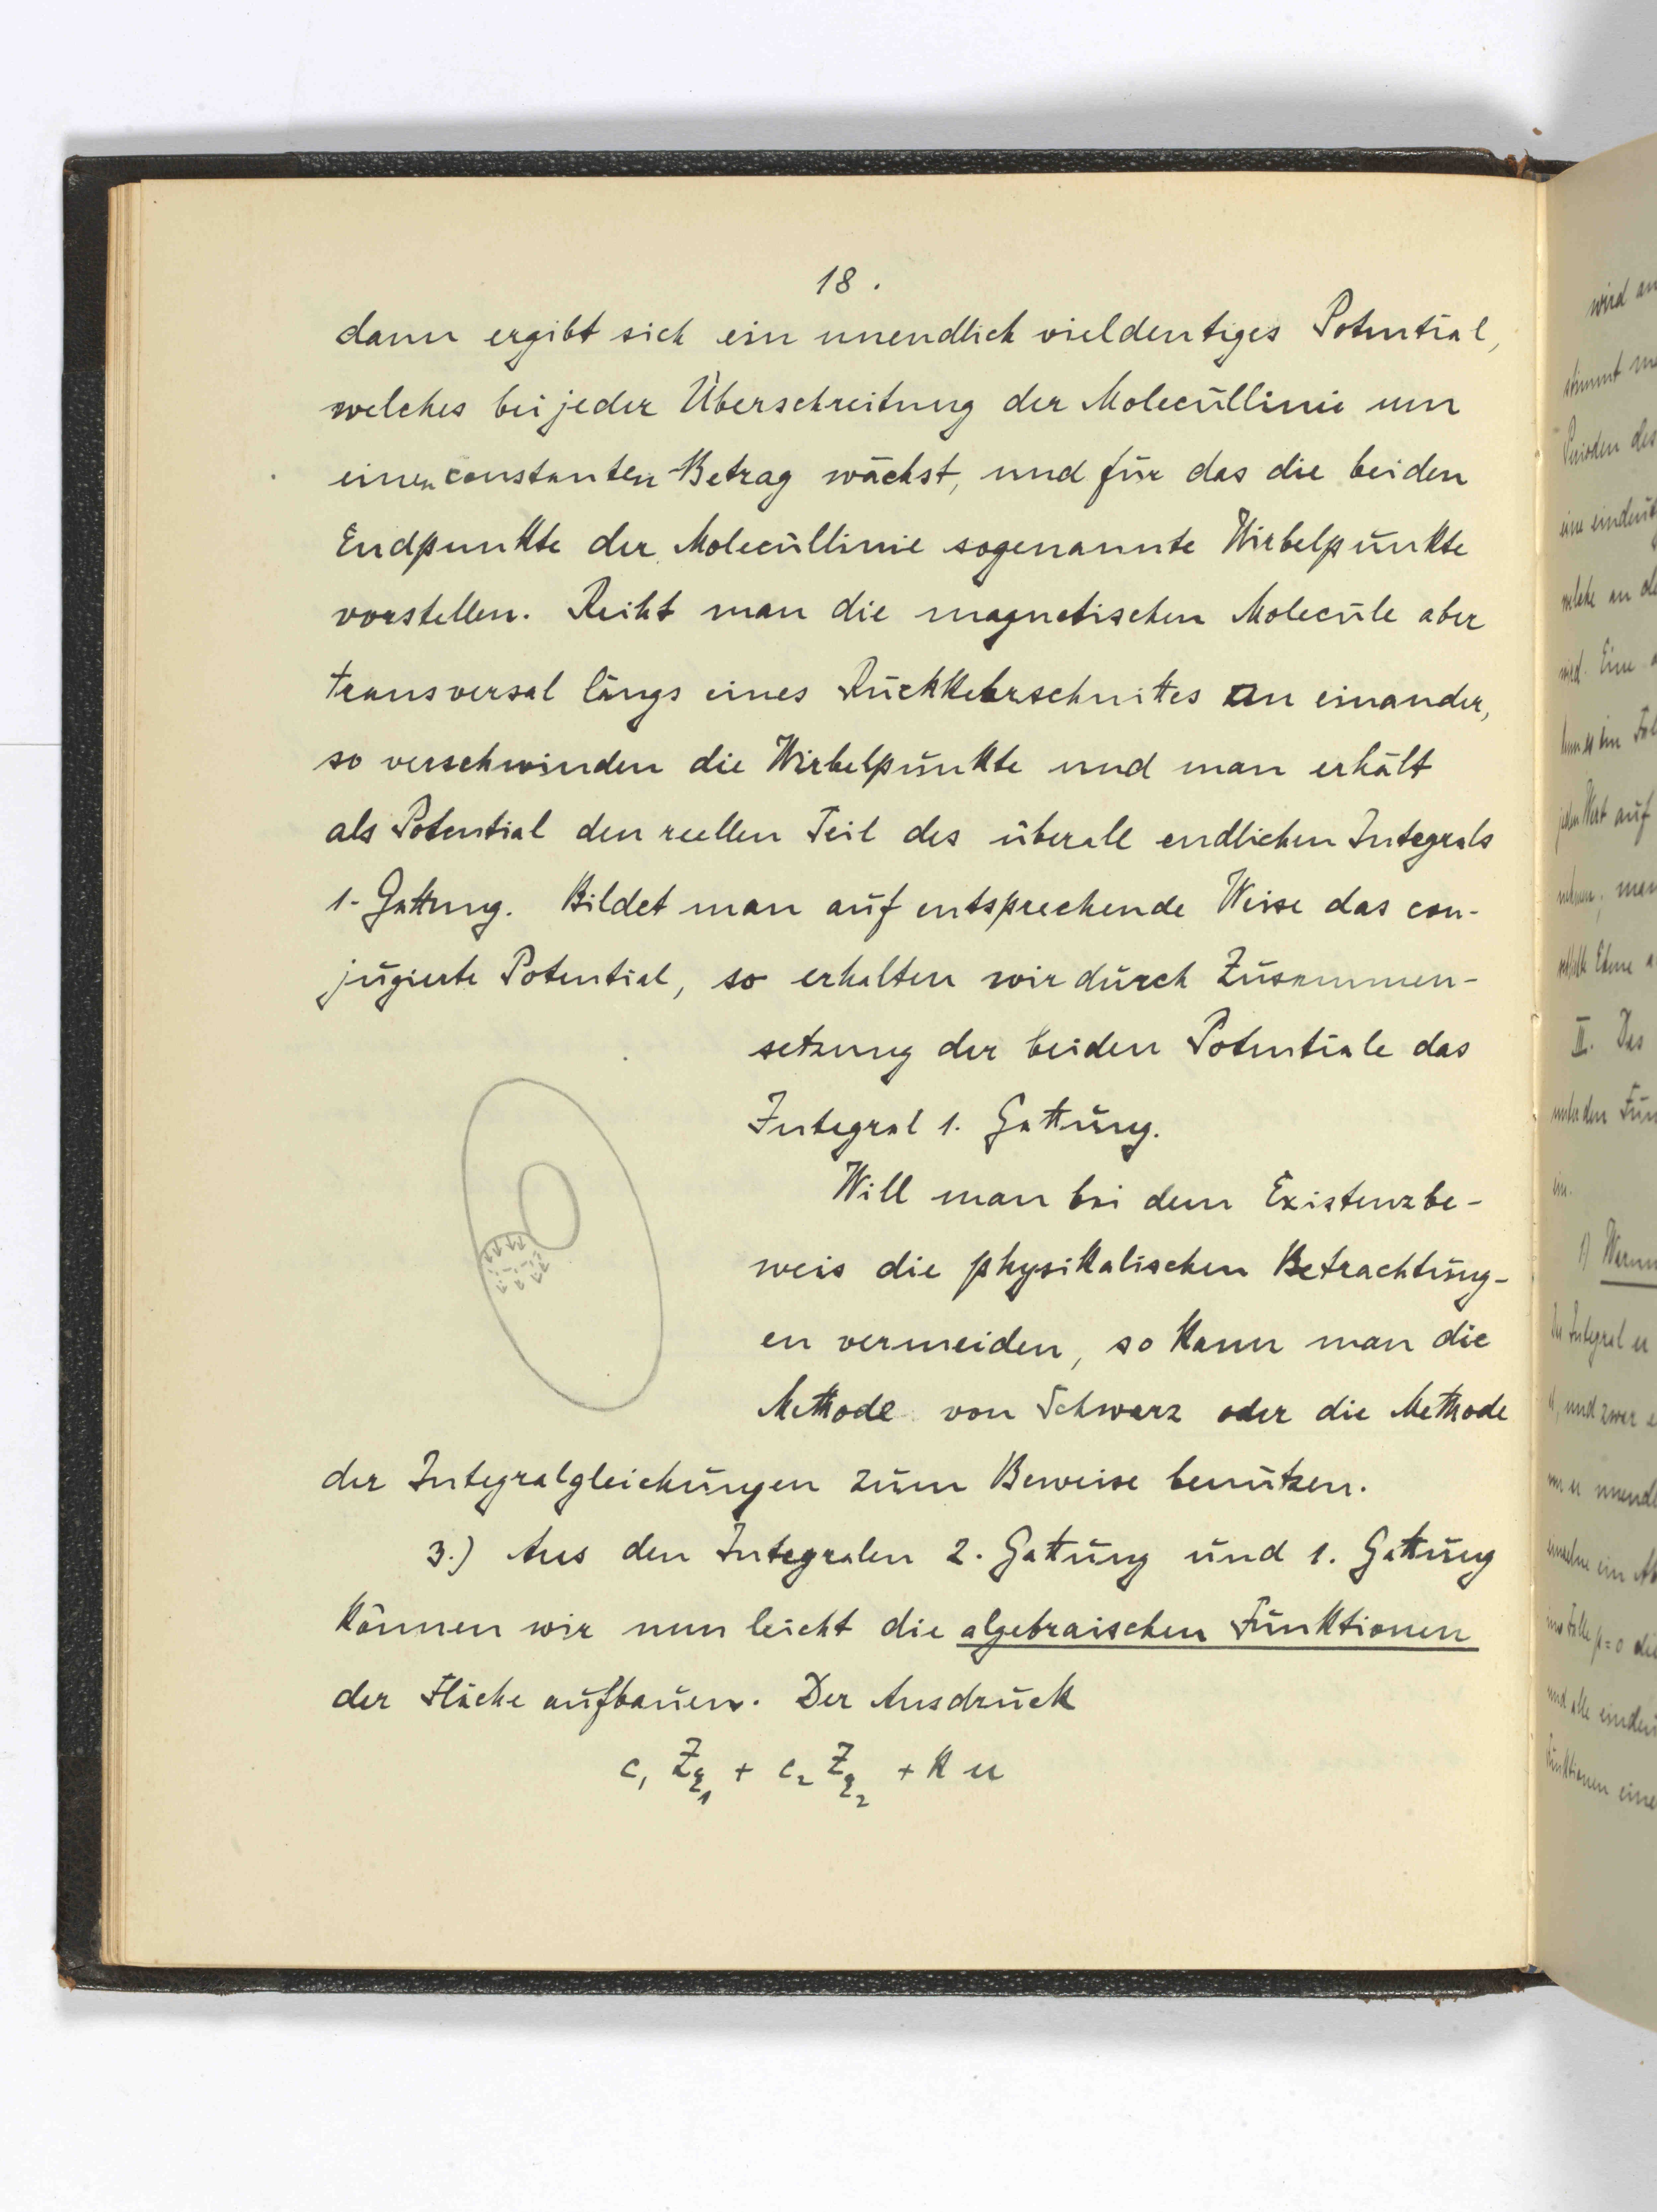 18.
dann ergibt sich ein unendlich vieldeutiges Potential,
welches bei jeder Überschreitung der Molecüllinie um
einen constanten Betrag wächst, und für das die beiden
Endpunkte der Molecüllinie sogenannte Wirbelpunkte
vorstellen. Reiht man die magnetischen Molecüle aber
transversal längs eines Rückkehrschnittes an einander,
so verschwinden die Wirbelpunkte und man erhält
als Potential den reellen Teil des überall endlichen Integrals
1. Gattung. Bildet man auf entsprechende Weise das con-
jugierte Potential, so erhalten wir durch Zusammen-
setzung der beiden Potentiale das
Integral 1. Gattung.
Will man bei dem Existenzbe-
weis die physikalischen Betrachtung-
en vermeiden, so kann man die
Methode von Schwarz oder die Methode
der Integralgleichungen zum Beweise benutzen.
3.) Aus den Integralen 2. Gattung und 1. Gattung
können wir nun leicht die algebraischen Funktionen
der Fläche aufbauen. Der Ausdruck
c₁ Z_ξ₁ + c₂ Z_ξ₂ + k u
wird
stimmt
Perioden des
eine
welche an
wird. Eine
jeden Wert auf
nehmen; man
Ebene
II. Das
unter den
ein.
1) Wenn
Integral
und zwar
ein
im Falle p=0 die
und alle
Funktionen eine